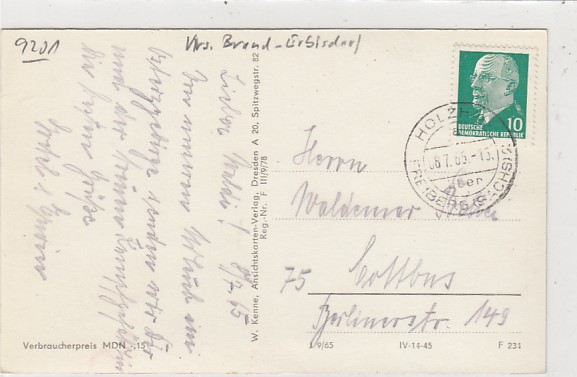 9201
Krs. Brand-Erbisdorf
Lieber Waldi! 8/7. 65
Von unserem Urlaub im
Osterzgebirge senden wir Dir
und der
die besten Grüße
W. Kenne, Ansichtskarten-Verlag, Dresden A 20, Spitzwegstr. 82
Reg.-Nr. F III/9/78
DEUTSCHE
DEMOKRATISCHE REPUBLIK
10
HOLZHAU
8.7.65.-15
über
FREIBERG (SACHS)
Herrn
Waldemar
75 Cottbus
Berlinerstr. 149
Verbraucherpreis MDN -,15
9/65
IV-14-45
F 231